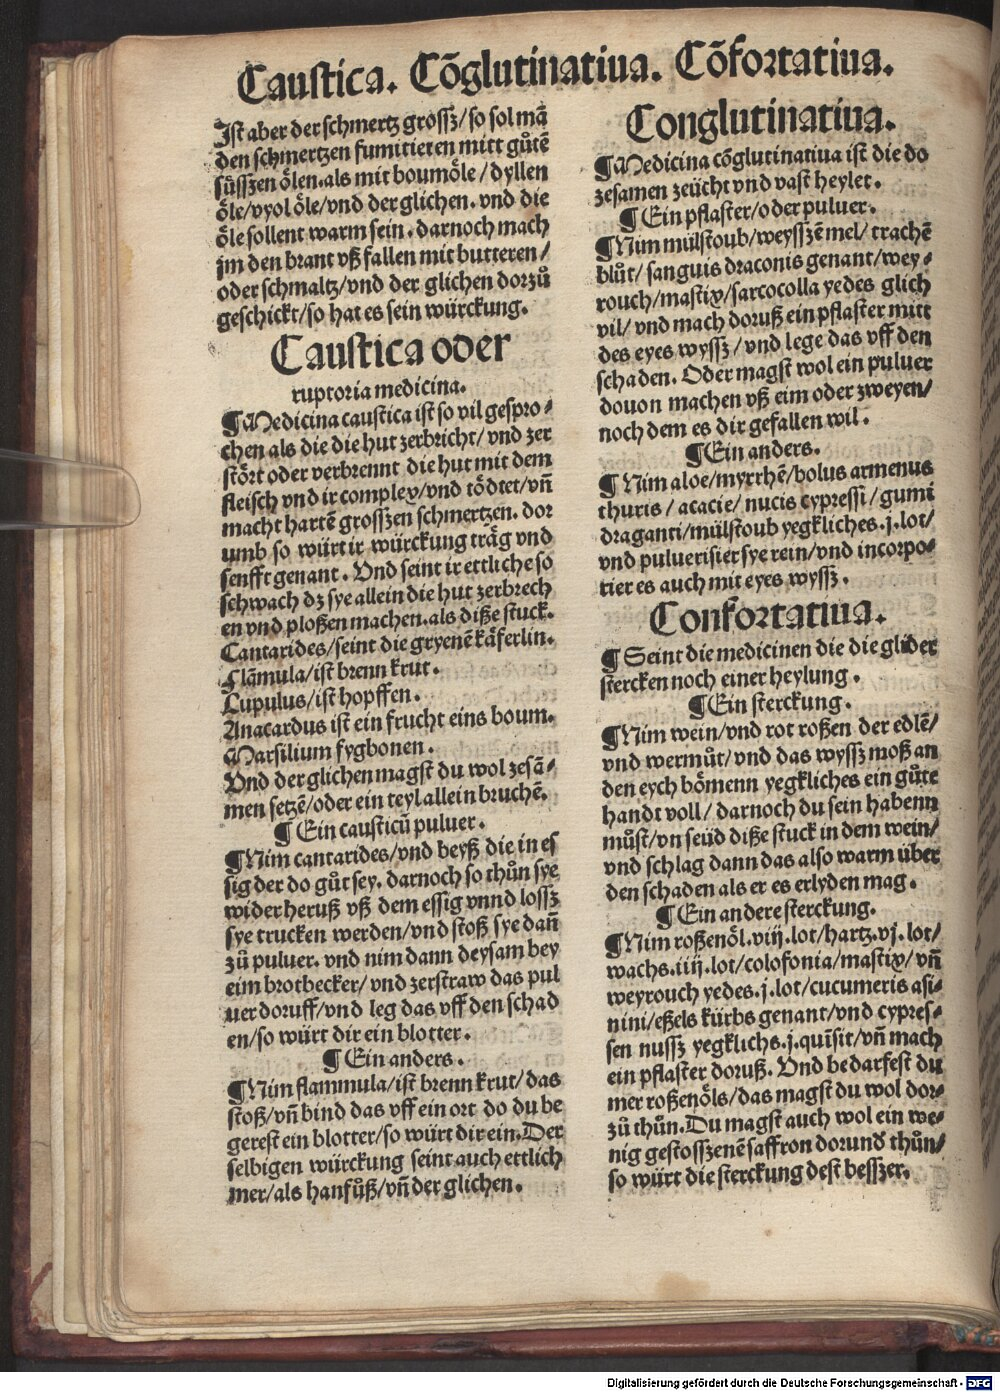 Caustica. Cõglutinatiua. Cõfortatiua.
Ist aber der schmertz grossz/so sol mã
den schmertzen fumitieren mitt gůtẽ
süsszen ölen.als mit boumöle/dyllen
öle/vyol öle/vnd der glichen. vnd die
öle sollent warm sein. darnoch mach
jm den brant vß fallen mit butteren/
oder schmaltz/vnd der glichen dorzů
geschickt/so hat es sein würckung.
Caustica oder
ruptoria medicina.
¶Medicina caustica ist so vil gespro⸗
chen als die die hut zerbricht/vnd zer
stört oder verbrennt die hut mit dem
fleisch vnd ir complex/vnd tödtet/vñ
macht hartẽ grosszen schmertzen. dor
umb so würt ir würckung träg vnd
senfft genant. Vnd seint ir ettliche so
schwach dz sye allein die hut zerbrech
en vnd ploßen machen.als diße stuck.
Cantarides/seint die gryenẽ käferlin.
Flãmula/ist brenn krut.
Lupulus/ist hopffen.
Anacardus ist ein frucht eins boum.
Marsilium fygbonen.
Vnd der glichen magst du wol zesã⸗
men setzẽ/oder ein teyl allein bruchẽ.
¶Ein causticũ puluer.
¶Nim cantarides/vnd beyß die in es
sig der do gůt sey. darnoch so thůn sye
wider heruß vß dem essig vnnd lossz
sye trucken werden/vnd stoß sye dañ
zů puluer. vnd nim dann deysam bey
eim brotbecker/vnd zerstraw das pul
uer doruff/vnd leg das vff den schad
en/so würt dir ein blotter.
¶Ein anders.
¶Nim flammula/ist brenn krut/das
stoß/vñ bind das vff ein ort do du be
gerest ein blotter/so würt dir ein.Der
selbigen würckung seint auch ettlich
mer/als hanfůß/vñ der glichen.
Conglutinatiua.
¶Medicina cõglutinatiua ist die do
zesamen zeücht vnd vast heylet.
¶Ein pflaster/oder puluer.
¶Nim mülstoub/weysszẽ mel/trachẽ
blůt/sanguis draconis genant/wey⸗
rouch/mastix/sarcocolla yedes glich
vil/vnd mach doruß ein pflaster mitt
des eyes wyssz/vnd lege das vff den
schaden. Oder magst wol ein puluer
douon machen vß eim oder zweyen/
noch dem es dir gefallen wil.
¶Ein anders.
¶Nim aloe/myrrhẽ/bolus armenus
thuris/acacie/nucis cypressi/gumi
draganti/mülstoub yegkliches.j.lot/
vnd puluerisier sye rein/vnd incorpo⸗
rier es auch mit eyes wyssz.
Confortatiua.
¶Seint die medicinen die die glider
stercken noch einer heylung.
¶Ein sterckung.
¶Nim wein/vnd rot roßen der edlẽ/
vnd wermůt/vnd das wyssz moß an
den eych bömenn yegkliches ein gůte
handt voll/darnoch du sein habenn
můst/vn seüd diße stuck in dem wein/
vnd schlag dann das also warm über
den schaden als er es erlyden mag.
¶Ein andere sterckung.
¶Nim roßenöl.viij.lot/hartz.vj.lot/
wachs.iiij.lot/colofonia/mastix/vñ
weyrouch yedes.j.lot/cucumeris asi⸗
nini/eßels kürbs genant/vnd cypres⸗
sen nussz yegklichs.j.quĩsit/vñ mach
ein pflaster doruß. Vnd bedarfest du
mer roßenöls/das magst du wol dor⸗
zů thůn.Du magst auch wol ein we⸗
nig gestosszenẽ saffron dorund thůn/
so würt die sterckung dest besszer.
Digitalisierung gefördert durch die Deutsche Forschungsgemeinschaft - DFG